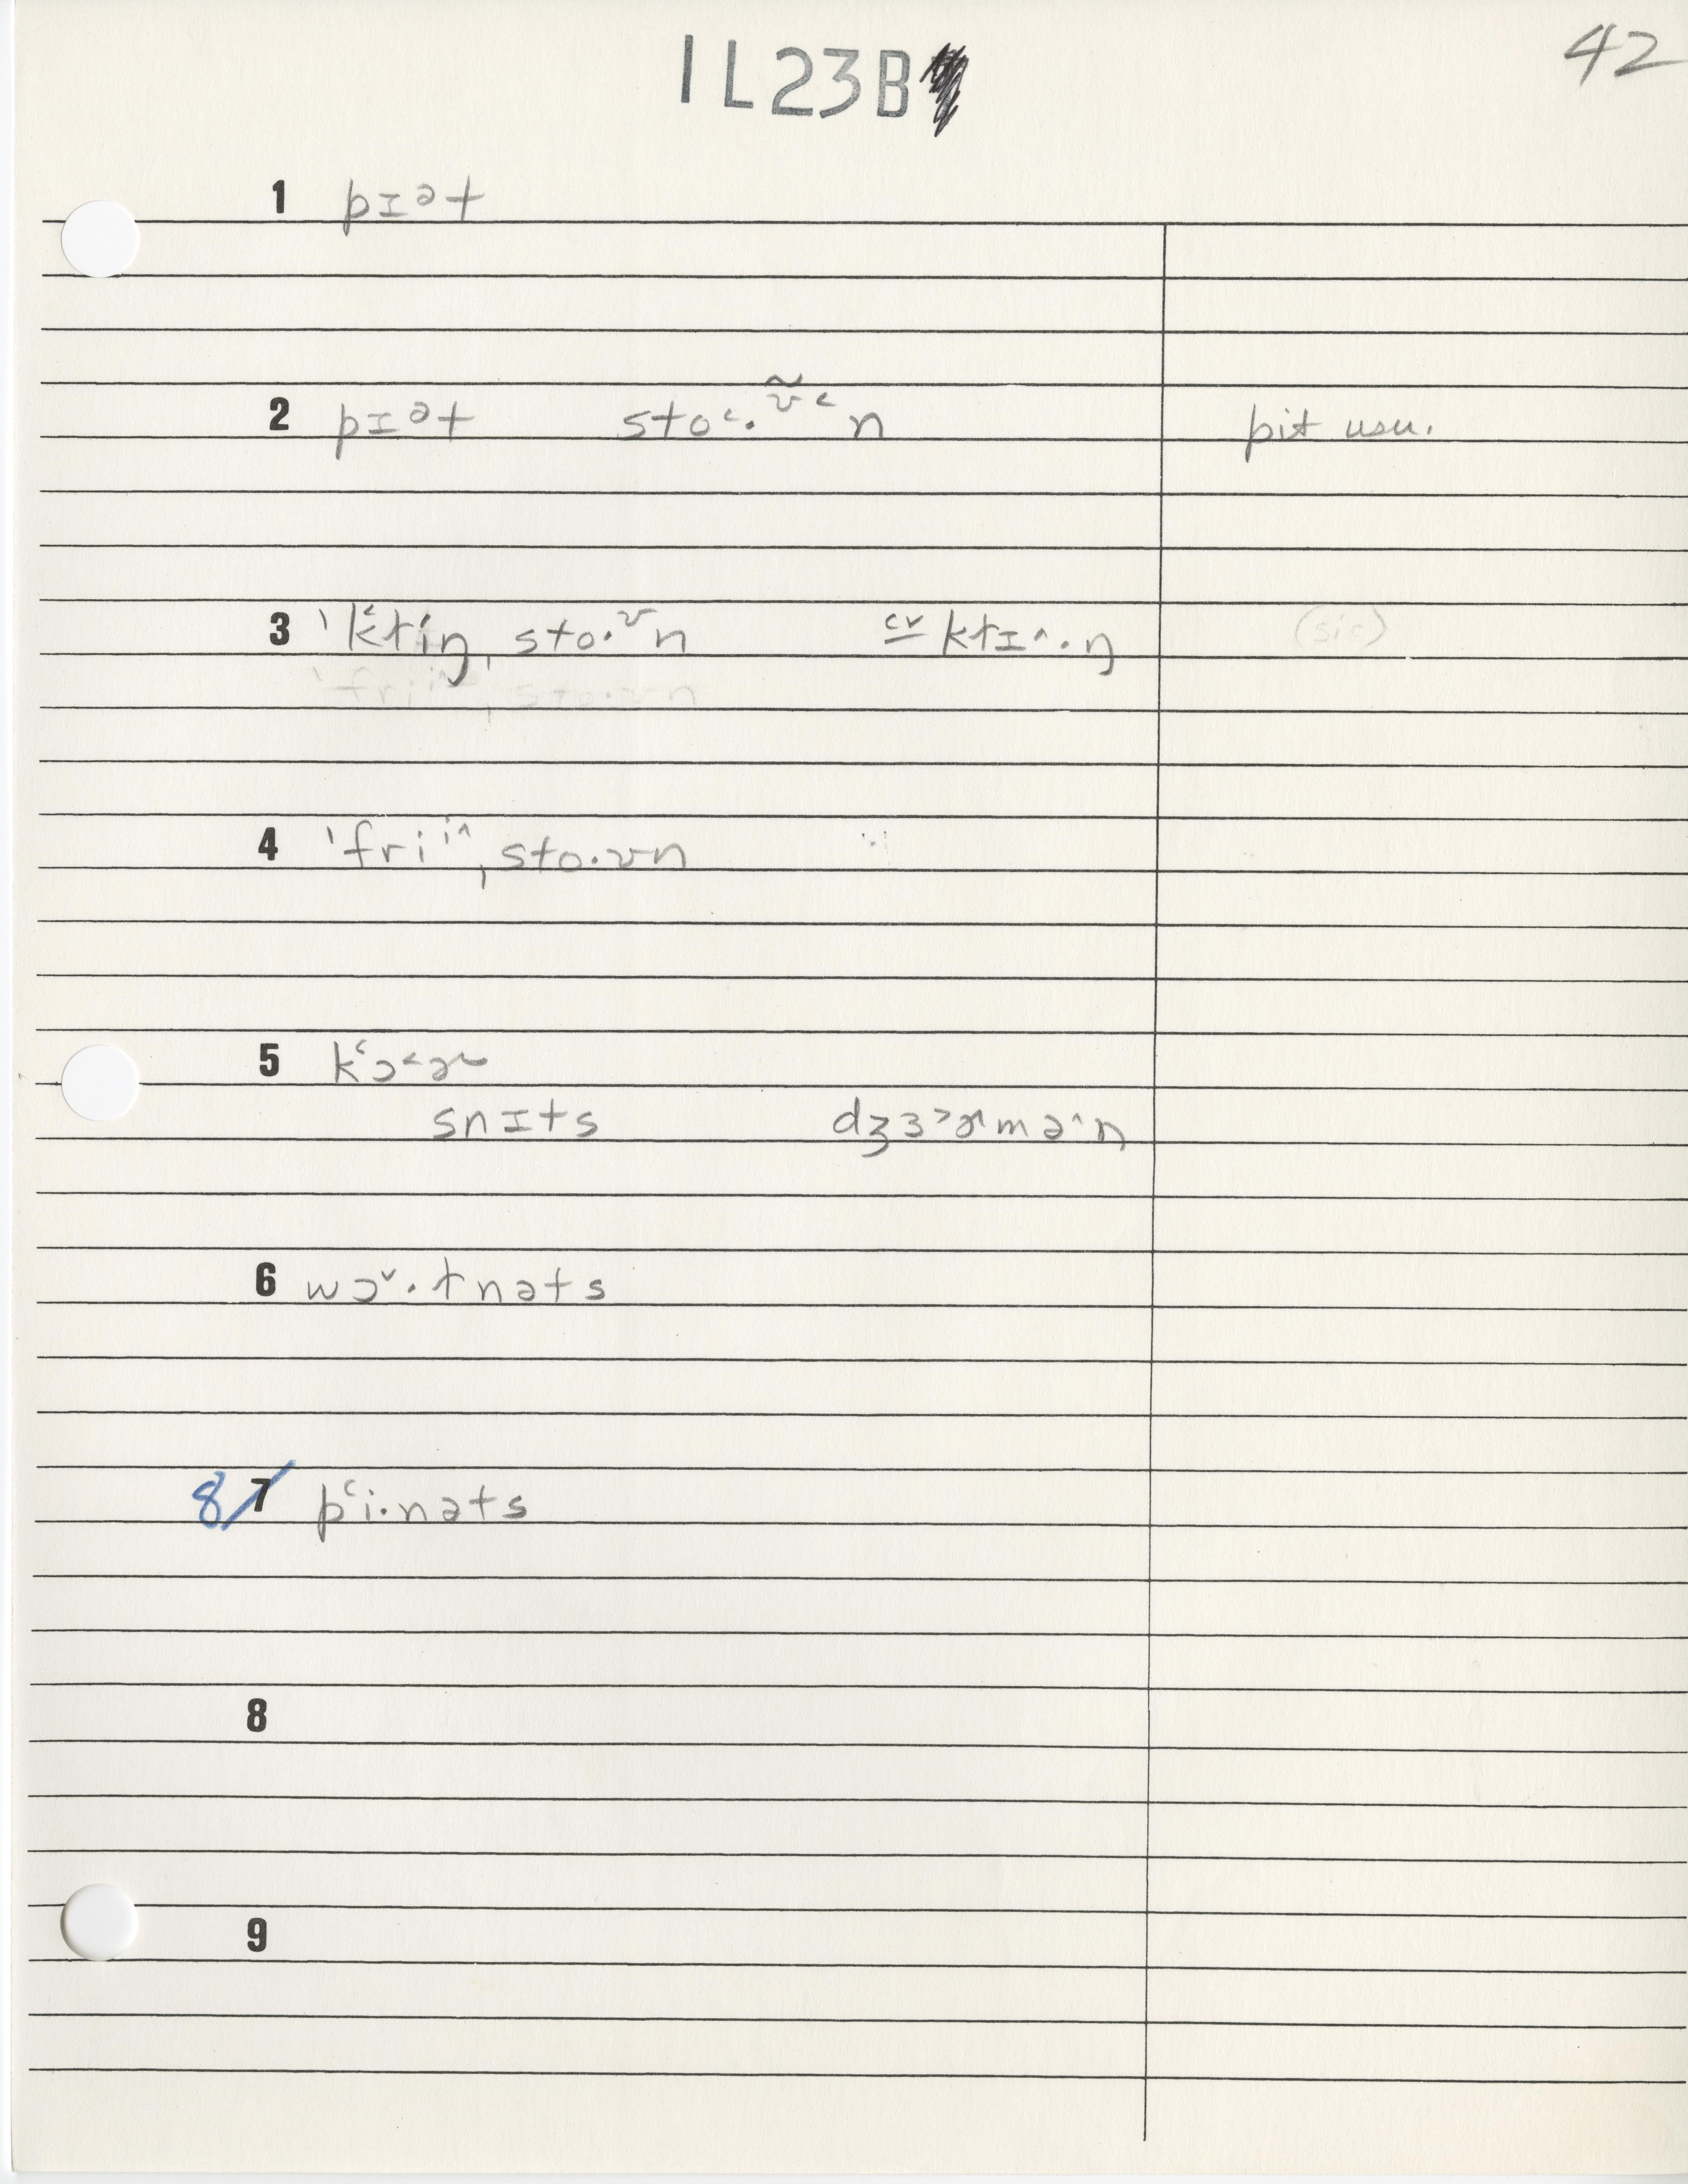 1L23B
42
1 pɪᵊt
2 pɪᵊt sto˂·ʊ̃˂n pit usu.
3 ˈk‘ɫiŋˌsto·ᶷn cv kɫɪ^·ŋ (sic)
ˈfriiˌsto·ʊn
4 ˈfriⁱ^ˌsto·ʊn
5 k‘ɔ˂ɚ
snɪts dʒɜ˃ɚmə^n
6 wɔ˅·ɫnəts
8/7 p‘i·nəts
8
9